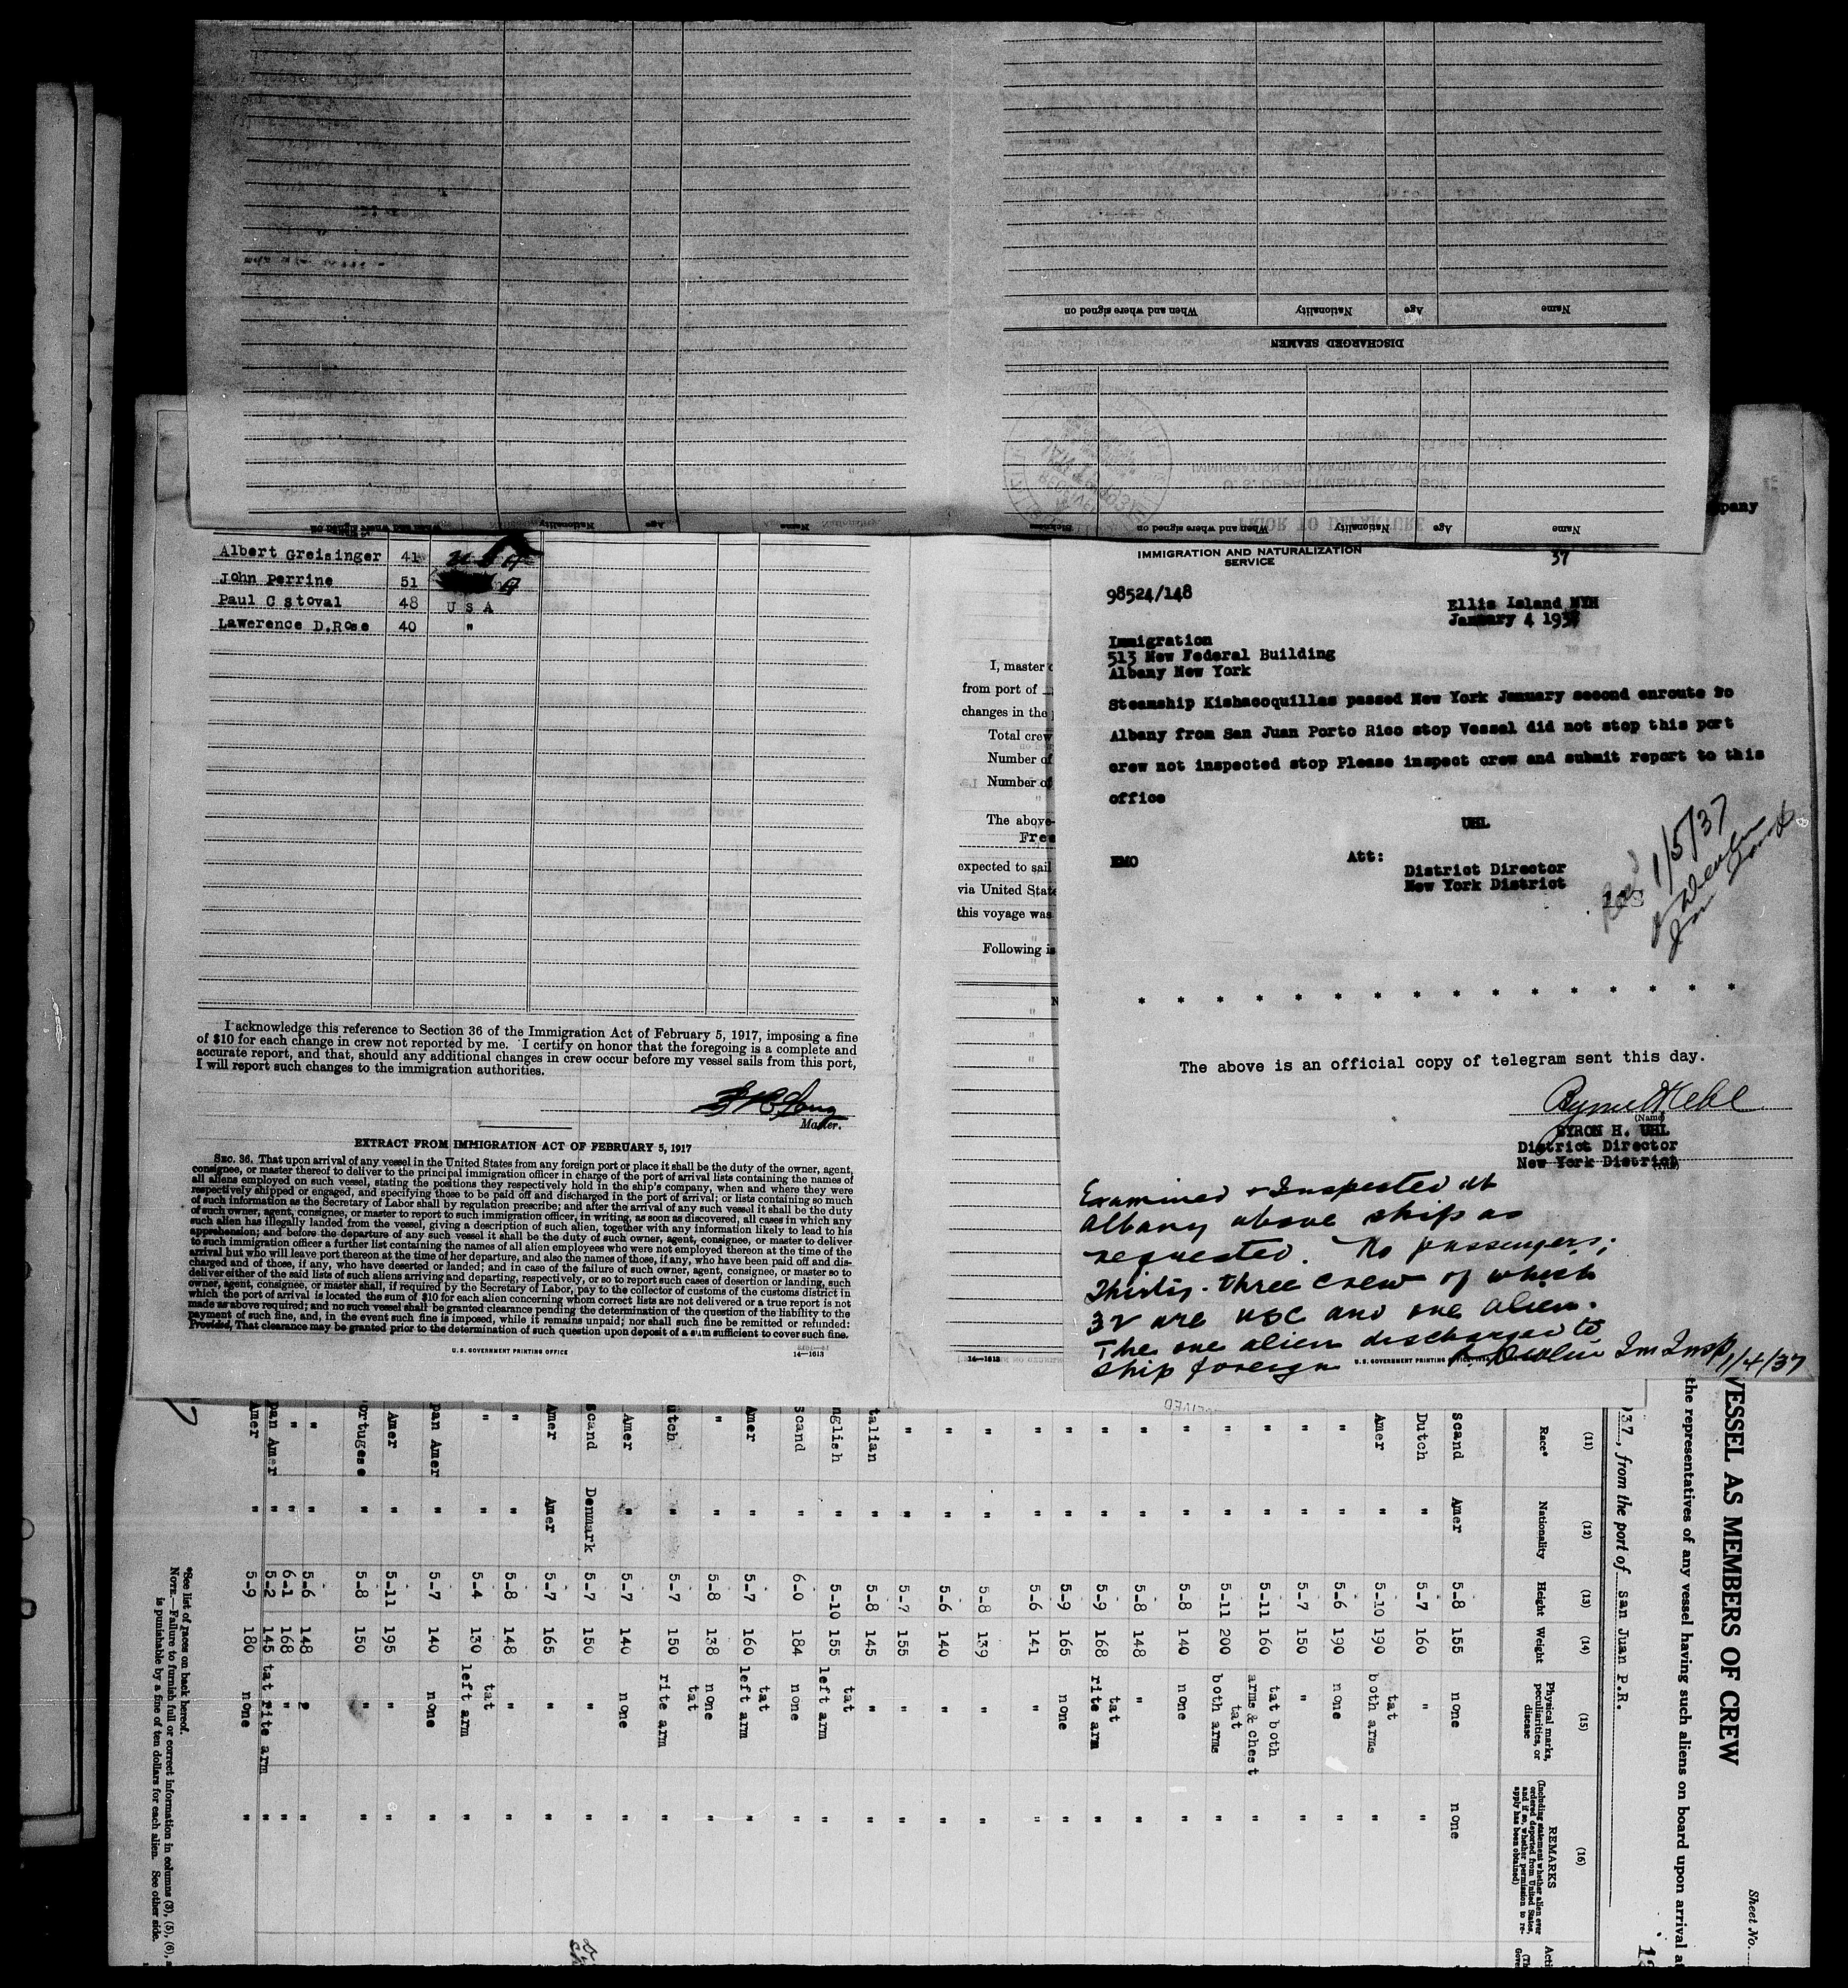 When and where signed on Nationality Age Name
DISCHARGED SEAMEN
When and where signed on Age Nationality Name
When and where signed on Nationality Age Name
PRIOR TO DEPARTURE
U. S. DEPARTMENT OF LABOR
pany
Albert Greisinger 41 U S A
John Perrine 51
Paul C stoval 48 U S A
Lawerence D.Rose 40 "
I acknowledge this reference to Section 36 of the Immigration Act of February 5, 1917, imposing a fine
of $10 for each change in crew not reported by me. I certify on honor that the foregoing is a complete and
accurate report, and that, should any additional changes in crew occur before my vessel sails from this port,
I will report such changes to the immigration authorities.
Master.
EXTRACT FROM IMMIGRATION ACT OF FEBRUARY 5, 1917
SEC. 36. That upon arrival of any vessel in the United States from any foreign port or place it shall be the duty of the owner, agent,
consignee, or master thereof to deliver to the principal immigration officer in charge of the port of arrival lists containing the names of
all aliens employed on such vessel, stating the positions they respectively hold in the ship's company, when and where they were
respectively shipped or engaged, and specifying those to be paid off and discharged in the port of arrival; or lists containing so much
of such information as the Secretary of Labor shall by regulation prescribe; and after the arrival of any such vessel it shall be the duty
of such owner, agent, consignee, or master to report to such immigration officer, in writing, as soon as discovered, all cases in which any
such alien has illegally landed from the vessel, giving a description of such alien, together with any information likely to lead to his
apprehension; and before the departure of any such vessel it shall be the duty of such owner, agent, consignee, or master to deliver
to such immigration officer a further list containing the names of all alien employees who were not employed thereon at the time of the
arrival but who will leave port thereon at the time of her departure, and also the names of those, if any, who have been paid off and dis-
charged and of those, if any, who have deserted or landed; and in case of the failure of such owner, agent, consignee, or master so to
deliver either of the said lists of such aliens arriving and departing, respectively, or so to report such cases of desertion or landing, such
owner, agent, consignee, or master shall, if required by the Secretary of Labor, pay to the collector of customs of the customs district in
which the port of arrival is located the sum of $10 for each alien concerning whom correct lists are not delivered or a true report is not
made as above required; and no such vessel shall be granted clearance pending the determination of the question of the liability to the
payment of such fine, and, in the event such fine is imposed, while it remains unpaid; nor shall such fine be remitted or refunded:
Provided, That clearance may be granted prior to the determination of such question upon deposit of a sum sufficient to cover such fine.
U. S. GOVERNMENT PRINTING OFFICE 14—1613
I, master
from port of
changes in the
Total crew
Number of
Number of
The above-
expected to sail
via United State
this voyage was
Following is
14—1613
U. S. GOVERNMENT PRINTING OFFICE
IMMIGRATION AND NATURALIZATION
SERVICE
37
98524/148
Ellis Island NYH
January 4 1937
Immigration
513 New Federal Building
Albany New York
Steamship Kishacoquillas passed New York January second enroute to
Albany from San Juan Porto Rico stop Vessel did not stop this port
crew not inspected stop Please inspect crew and submit report to this
office
UHL
EMO Att: District Director
New York District
1/5/37
* * * * * * * * * * * * * * * *
The above is an official copy of telegram sent this day.
Byron H Uhl
(Name)
BYRON H. UHL
District Director
New York District
Examined & Inspected at
Albany above ship as
requested. No passengers;
Thirty-three crew of which
32 are USC and one alien.
The one alien discharged to
ship foreign
Im Insp, 1/4/37
Sheet No.
VESSEL AS MEMBERS OF CREW
the representatives of any vessel having such aliens on board upon arrival a
37, from the port of San Juan P.R.
(11) (12) (13) (14) (15) (16)
Race* Nationality Height Weight Physical marks, peculiarities, or disease REMARKS
(Including statement whether alien ever ordered deported from United States, and if so, whether permission to re-apply has been obtained)
Scand Amer 5-8 155 none none
Dutch " 5-7 160 " "
Amer " 5-10 190 tat both arms "
" " 5-6 190 none "
" " 5-7 150 " "
" " 5-11 160 tat both arms & chest "
" " 5-11 200 tat both arms "
" " 5-8 140 none "
" " 5-8 148 " "
" " 5-9 168 tat rite arm "
" " 5-9 165 none "
" " 5-6 141 " "
" " 5-8 139 " "
" " 5-6 140 " "
" " 5-7 155 " "
talian " 5-8 145 " "
nglish " 5-10 155 tat left arm "
Scand " 6-0 184 none "
Amer " 5-7 160 tat left arm "
" " 5-8 138 none "
utch " 5-7 150 tat rite arm "
Amer " 5-7 140 none "
scand Denmark 5-7 150 " "
Amer Amer 5-7 165 " "
" " 5-8 148 " "
" " 5-4 130 tat left arm "
pan Amer " 5-7 140 none "
Amer " 5-11 195 " "
ortugese " 5-8 150 " "
" " 5-6 148 "
" " 6-1 168 " "
pan Amer " 5-2 145 tat rite arm "
Amer " 5-9 180 none "
*See list of races on back hereof.
NOTE.—Failure to furnish full or correct information in columns (3), (5), (6),
is punishable by a fine of ten dollars for each alien. See other side.